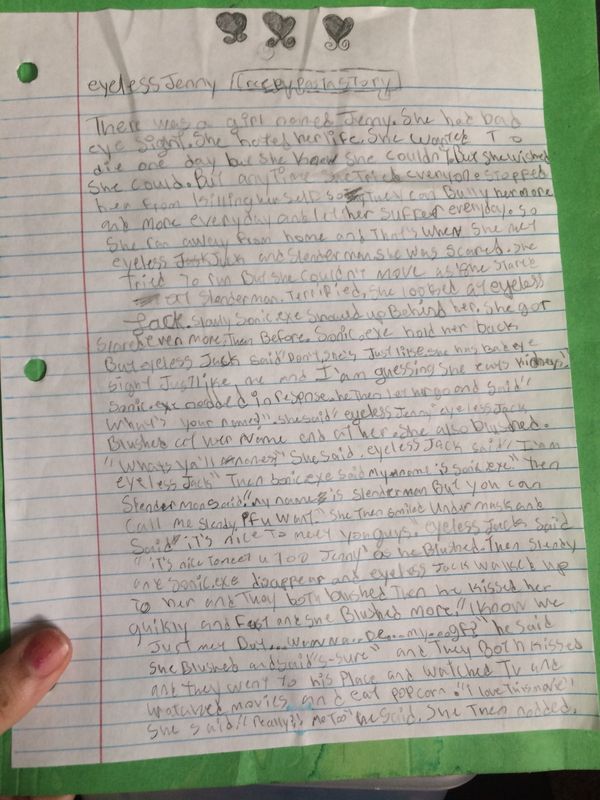 eyeless Jenny (creepypasta story)
There was a girl named Jenny. She had bad
eye sight. She hated her life. She wanted To
die one day but she knew she couldn't. But she wished
She could. But any time she tried everyone stopped
her from killing herself so they can Bully her more
and more everyday and let her suffer everyday. So
She ran away from home and That's when she met
eyeless Jack and Slenderman. She was scared. She
Tried To run But she couldn't move as she stared
at Slenderman. Terrified, She looked at eyeless
Jack. Slowly Sonic.exe showed up Behind her. She got
scared even more Then Before. Sonic.exe hold her back
But eyeless Jack said "Don't, she's Just like me she has bad eye
sight Just like me and I'am guessing she eats kidneys"
Sonic.exe nodded in response. he Then let her go and said "
What's your name?". she said "eyeless Jenny" eyeless Jack
Blushed at her name and at her. She also blushed.
"What's ya'll names" She said. eyeless Jack said "I'am
eyeless Jack" Then Sonic.exe said "My name is Sonic.exe." Then
Slenderman said "my name is Slenderman But you can
call me Slendy, if u want." She Then smiled under mask and
Said "it's nice To meet you guys." eyeless Jack said
"it's nice To meet u Too Jenny" as he Blushed. Then Slendy
and Sonic.exe disappear and eyeless Jack walked up
To her and They both blushed Then he kissed her
quikly and Fast and she Blushed more. "I know we
Just met But... wanna... be... my... gf?" he said
She Blushed and said "s-sure" and They Both kissed
and They went To his Place and watched Tv and
watched movies and eat popcorn. "I love This movie"
She said. "Really?! Me Too" he said. She Then nodded.